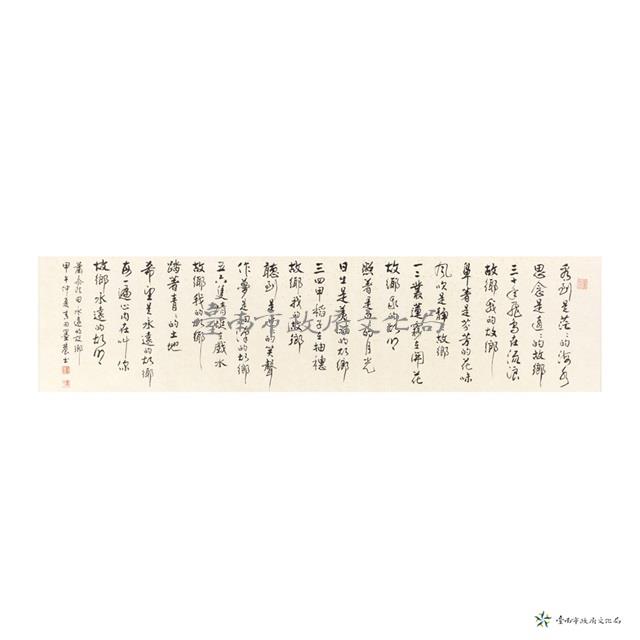 看到是茫々的海水
思念是遠々的故鄉
三十隻飛鳥在流浪
故鄉我的故鄉
鼻著是芬芳的花味
風吹是故鄉
一二叢蓮霧在開花
故鄉
照著的月光
日生是的故鄉
三四甲稻子在抽穗
故鄉我故鄉
聽到是的笑聲
作夢是的故鄉
五六隻在戲水
故鄉我的故鄉
踏著青々的土地
希望是永遠的故鄉
每一遍心內在叫你
故鄉永遠的故鄉
蕭 永遠的故鄉
甲午仲夏 書
臺南市政府文化局
臺南市政府文化局